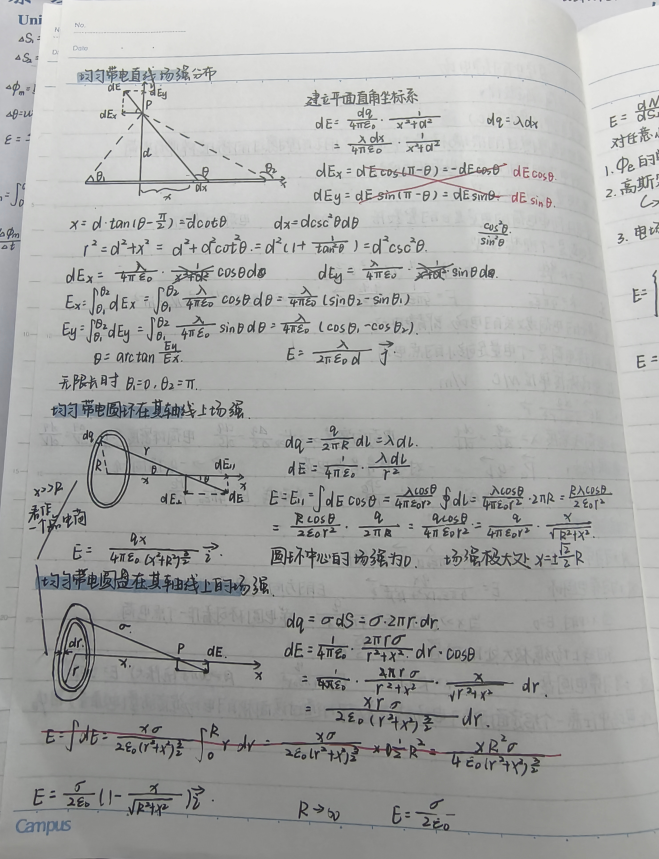 No.
Date
均匀带电直线场强分布
dE dEy
dEx P
d
θ₁ θ θ₂
x dx x
建立平面直角坐标系
dE = dq/4πε₀ · 1/(x²+d²) dq = λdx
= λdx/4πε₀ · 1/(x²+d²)
dEx = dE cos(π-θ) = -dE cosθ dE cosθ
dEy = dE sin(π-θ) = dE sinθ. dE sinθ.
x = d·tan(θ-π/2) = dcotθ dx = dcsc²θdθ cos²θ/sin²θ
r² = d²+x² = d²+d²cot²θ = d²(1+1/tan²θ) = d²csc²θ.
dEx = λ/4πε₀ · 1/(x²+d²) cosθdθ dEy = λ/4πε₀ · 1/(x²+d²) sinθdθ.
Ex = ∫θ₁^θ₂ dEx = ∫θ₁^θ₂ λ/4πε₀ cosθdθ = λ/4πε₀ (sinθ₂-sinθ₁)
Ey = ∫θ₁^θ₂ dEy = ∫θ₁^θ₂ λ/4πε₀ sinθdθ = λ/4πε₀ (cosθ₁-cosθ₂).
θ = arctan Ey/Ex. E = λ/2πε₀d j.
无限长时 θ₁=0, θ₂=π.
均匀带电圆环在其轴线上场强.
dq r
R θ x θ dE₁₁ x
dE⊥ dE
x>>R
看作
一个点电荷
dq = q/2πR dL = λdL.
dE = 1/4πε₀ · λdL/r²
E = E₁₁ = ∫dE cosθ = λcosθ/4πε₀r² ∮dL = λcosθ/4πε₀r² · 2πR = Rλcosθ/2ε₀r²
= Rcosθ/2ε₀r² · q/2πR = qcosθ/4πε₀r² = q/4πε₀r² · x/√(R²+x²).
E = qx/4πε₀(x²+R²)^(3/2) i.
圆环中心的场强为0. 场强极大处 x=±√2/2 R
均匀带电圆盘在其轴线上的场强.
σ.
dr P dE.
r x. x
dq = σdS = σ·2πr·dr.
dE = 1/4πε₀ · 2πrσ/(r²+x²) dr · cosθ
= 1/4πε₀ · 2πrσ/(r²+x²) · x/√(r²+x²) dr.
= xrσ/2ε₀(r²+x²)^(3/2) dr.
E = ∫dE = xσ/2ε₀(r²+x²)^(3/2) ∫₀^R r dr = xσ/2ε₀(r²+x²)^(3/2) × 1/2 R² = xR²σ/4ε₀(r²+x²)^(3/2)
E = σ/2ε₀ (1 - x/√(R²+x²)) i. R→∞ E = σ/2ε₀
Campus
Uni
对任意
1. Φe的
2. 高斯
3. 电
E=
E=